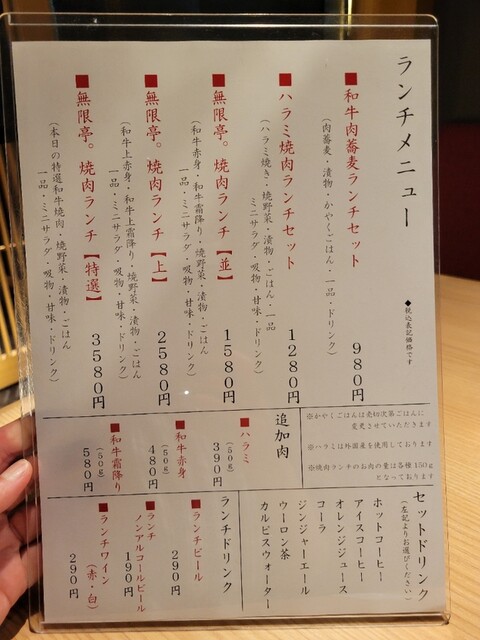 ランチメニュー
◆税込表記価格です
■和牛肉蕎麦ランチセット
980円
(肉蕎麦・漬物・かやくごはん・一品・ドリンク)
■ハラミ焼肉ランチセット
1280円
(ハラミ焼き・焼野菜・漬物・ごはん・一品
ミニサラダ・吸物・甘味・ドリンク)
■無限亭。焼肉ランチ【並】
1580円
(和牛赤身・和牛霜降り・焼野菜・漬物・ごはん
一品・ミニサラダ・吸物・甘味・ドリンク)
■無限亭。焼肉ランチ【上】
2580円
(和牛上赤身・和牛上霜降り・焼野菜・漬物・ごはん
一品・ミニサラダ・吸物・甘味・ドリンク)
■無限亭。焼肉ランチ【特選】
3580円
(本日の特選和牛焼肉・焼野菜・漬物・ごはん
一品・ミニサラダ・吸物・甘味・ドリンク)
※かやくごはんは売切次第ごはんに
変更させていただきます
※ハラミは外国産を使用しております
※焼肉ランチのお肉の量は各種150g
となっております
追加肉
■ハラミ
(50g)
390円
■和牛赤身
(50g)
480円
■和牛霜降り
(50g)
580円
セットドリンク
(左記よりお選びください)
ホットコーヒー
アイスコーヒー
オレンジジュース
コーラ
ジンジャーエール
ウーロン茶
カルピスウォーター
ランチドリンク
■ランチビール
290円
■ランチ
ノンアルコールビール
190円
■ランチワイン
(赤・白)
290円